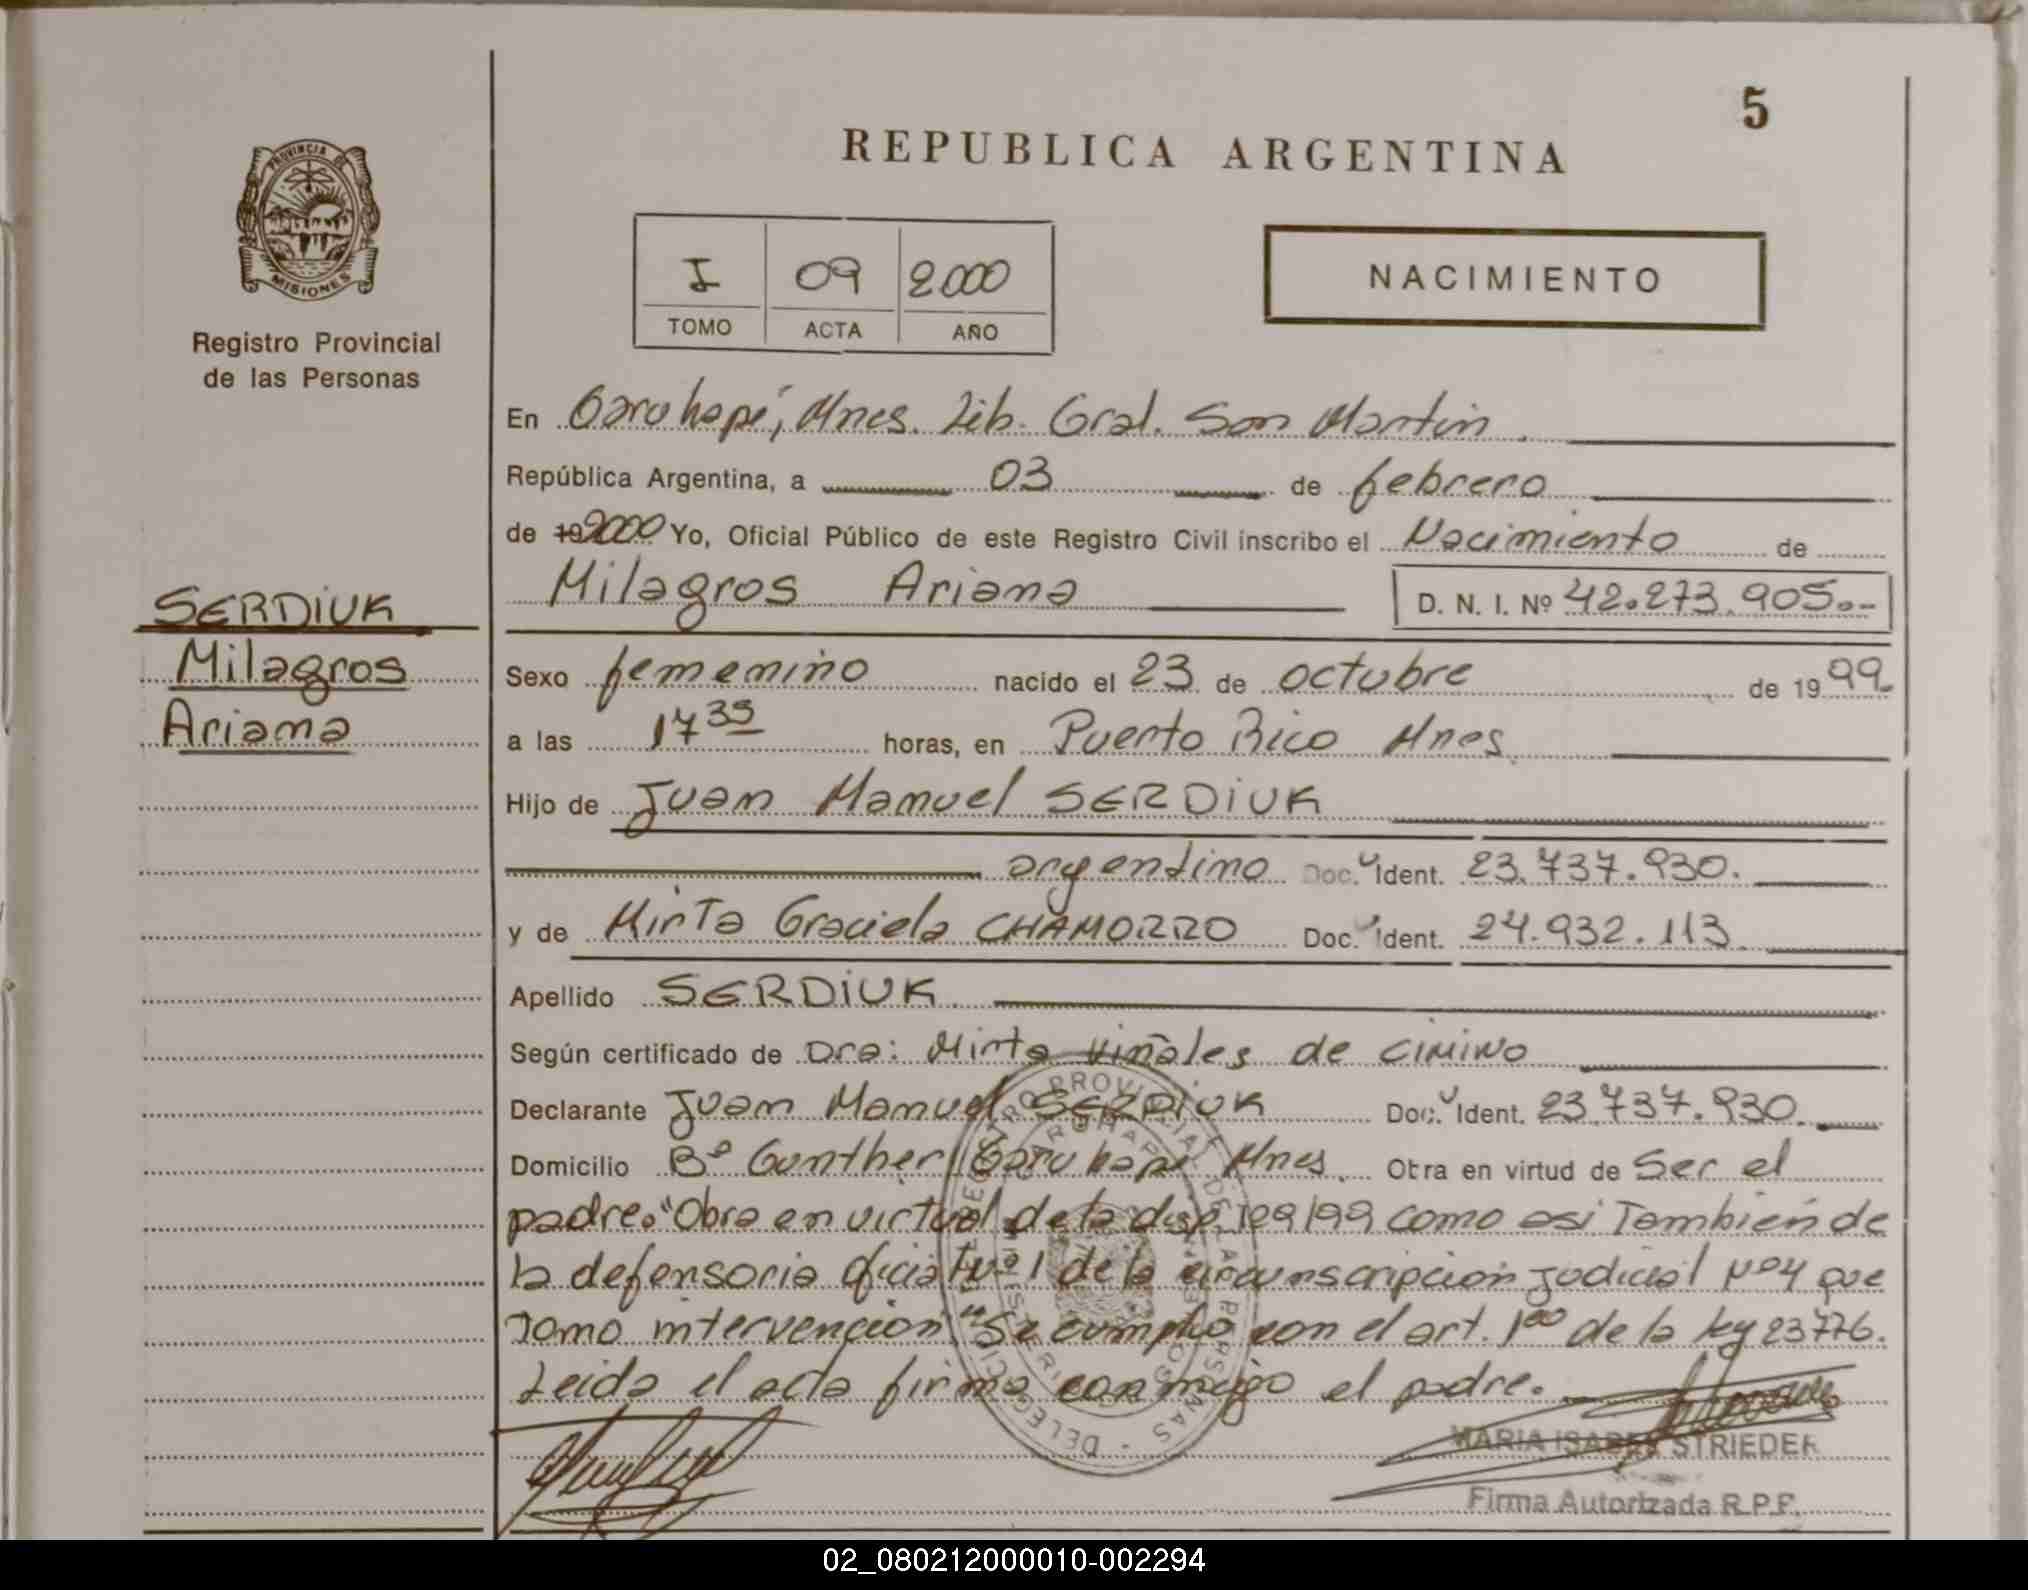 5
REPUBLICA ARGENTINA
PROVINCIA DE
MISIONES
Registro Provincial
de las Personas
I 09 2000
TOMO ACTA AÑO
NACIMIENTO
En Garuhapé, Mnes. Lib. Gral. San Martin.
República Argentina, a 03 de febrero
de 19 2000 Yo, Oficial Público de este Registro Civil inscribo el Nacimiento de
Milagros Ariana D. N. I. Nº 42.273.905.-
SERDIUK
Milagros
Ariana
Sexo femenino nacido el 23 de octubre de 19 99.
a las 17 35 horas, en Puerto Rico Mnes.
Hijo de Juan Manuel SERDIUK
argentino Doc. Ident. 23.737.930.
y de Mirta Graciela CHAMORRO Doc. Ident. 24.932.113
Apellido SERDIUK
Según certificado de Dra: Mirta Viñales de CIMINO
Declarante Juan Manuel SERDIUK Doc. Ident. 23.737.930.
Domicilio Bº Gunther Garuhapé Mnes. Otra en virtud de Ser el
padre. "Obra en virtud de la disp. 109/99 como asi Tambien de
la defensoria oficial Nº 1 de la circunscripcion Judicial Nº 4 que
Tomo intervención" Se cumplio con el art. 1ro de la ley 23776.
Leida el acta firma conmigo el padre.
MARIA ISABEL STRIEDER
Firma Autorizada R.P.F.
02_080212000010-002294